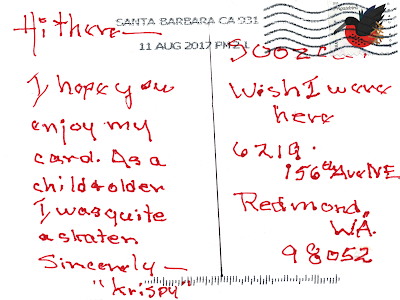 SANTA BARBARA CA 931
11 AUG 2017 PM 2 L
Hi there—
I hope you
enjoy my
card. As a
child & older
I was quite
a skater.
Sincerely —
"Krispy"
Wish I were
here
6219
156th Ave NE
Redmond,
WA.
98052